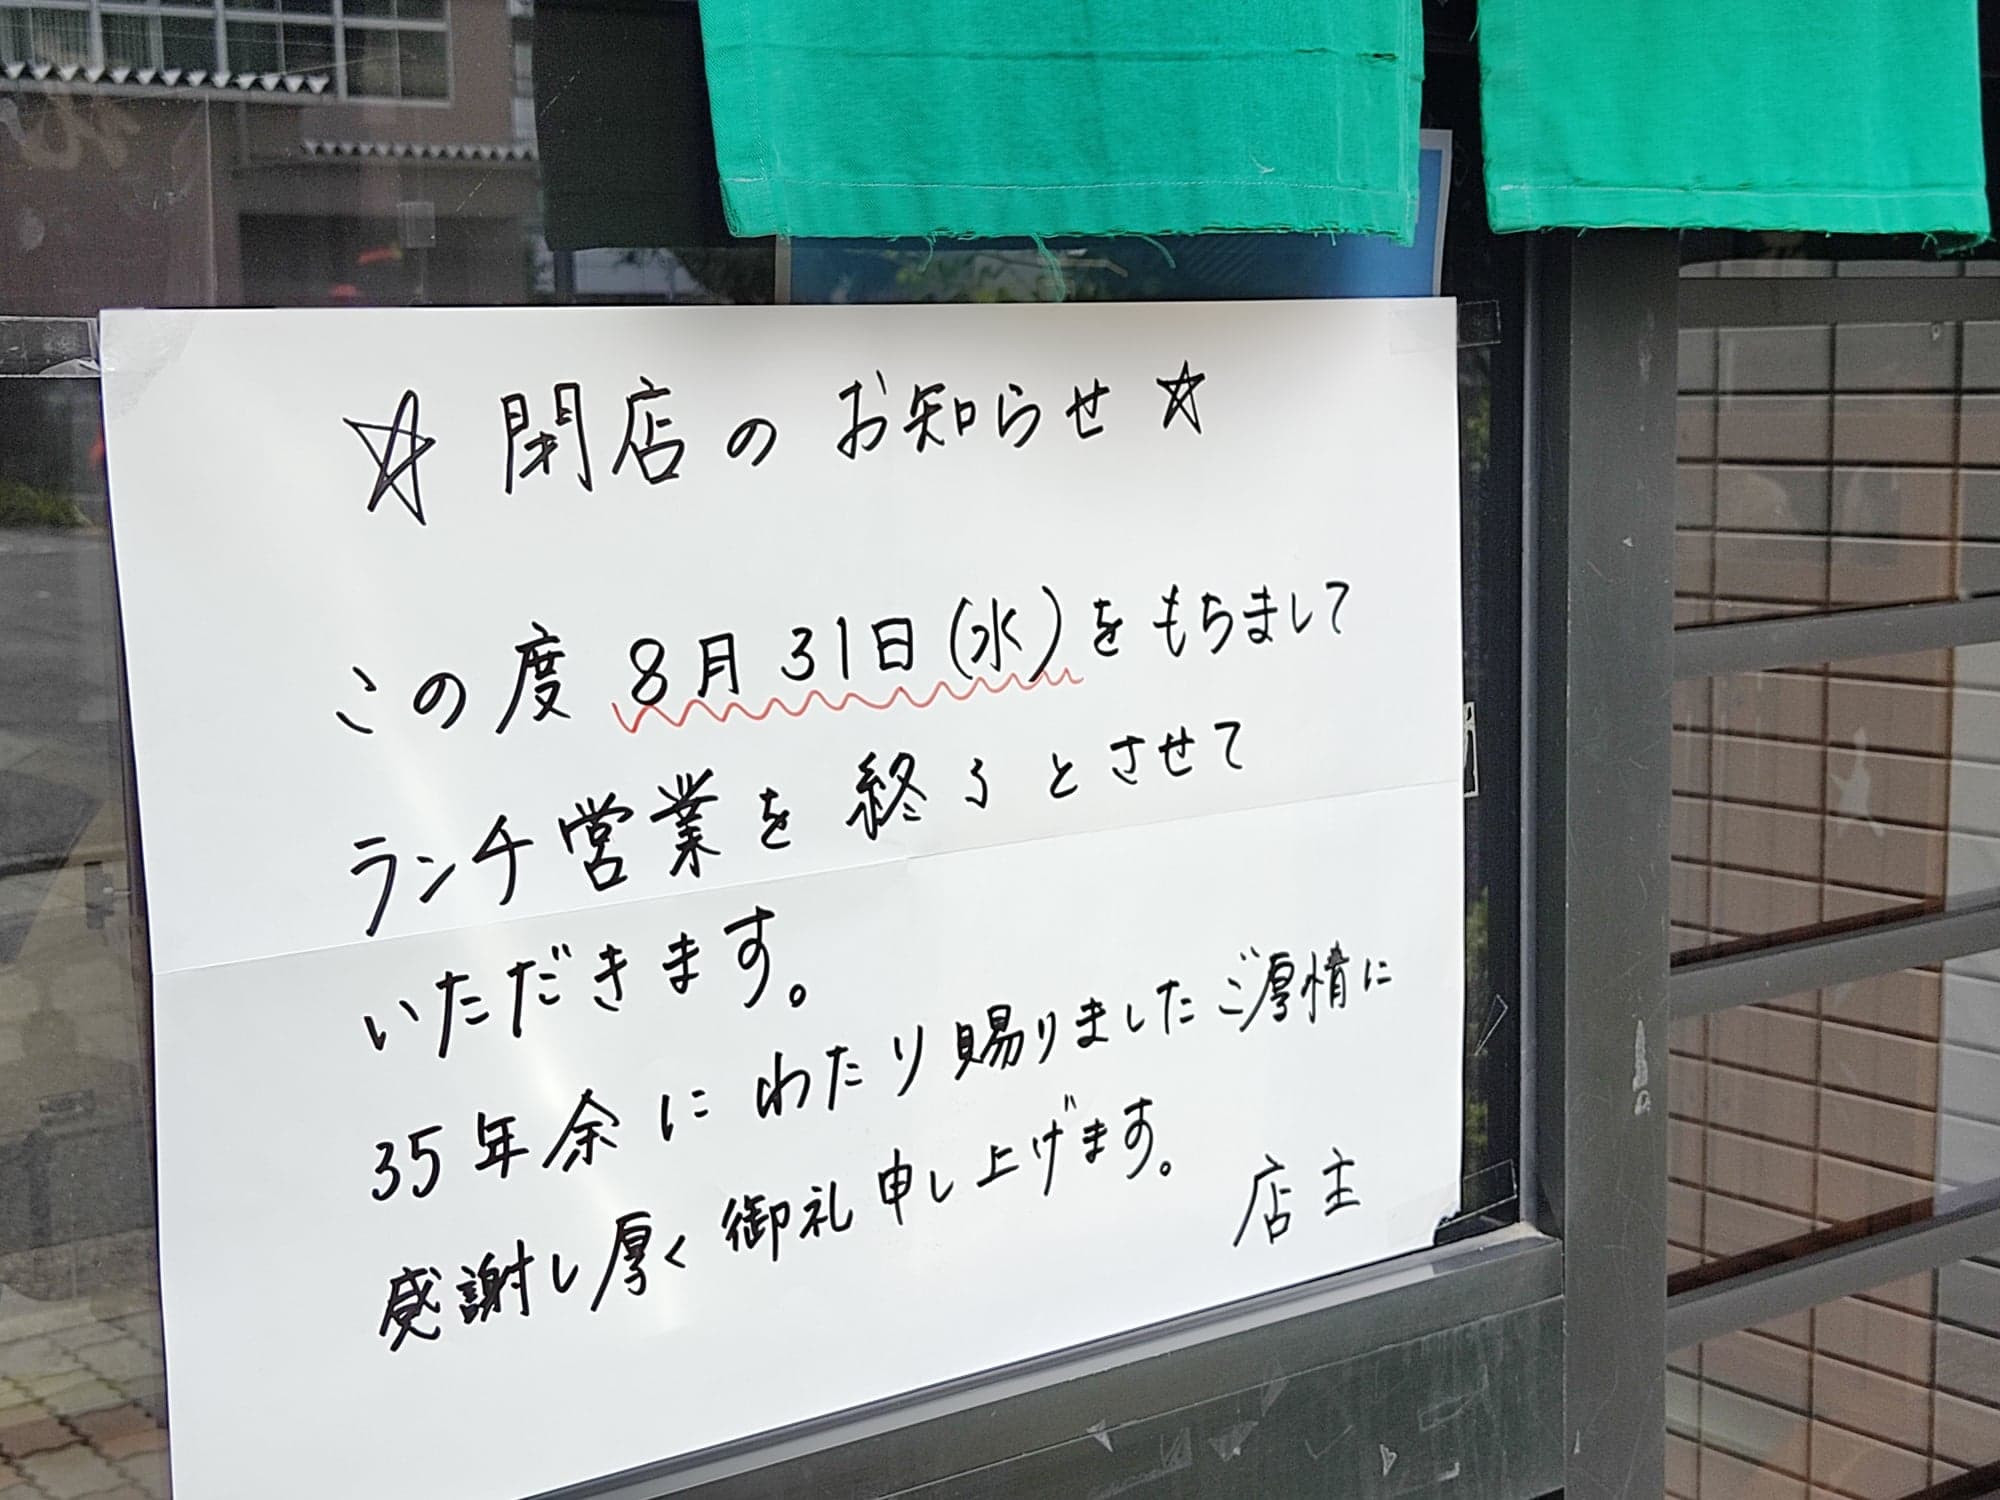 ☆ 閉店の お知らせ ☆
この度 8月31日(水)をもちまして
ランチ営業を終了とさせて
いただきます。
35年余にわたり賜りましたご厚情に
感謝し厚く御礼申し上げます。
店主